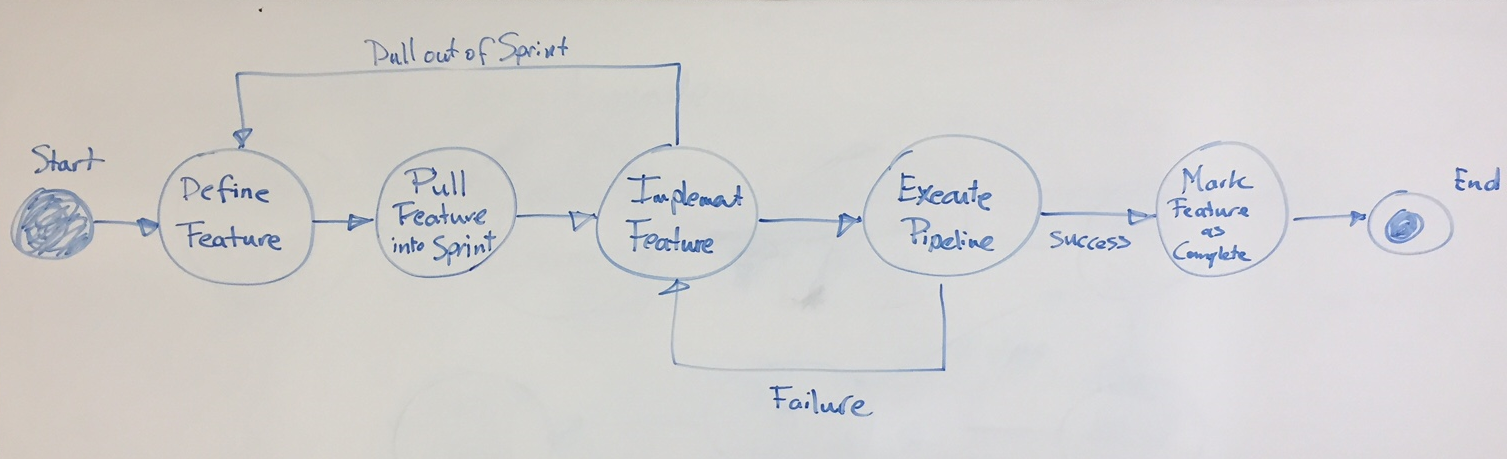 Pull out of Sprint
Start
Define
Feature
Pull
Feature
into Sprint
Implement
Feature
Execute
Pipeline
Success
Mark
Feature
as
Complete
End
Failure